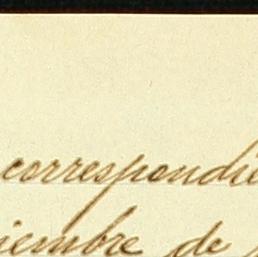 correspondie
iembre de